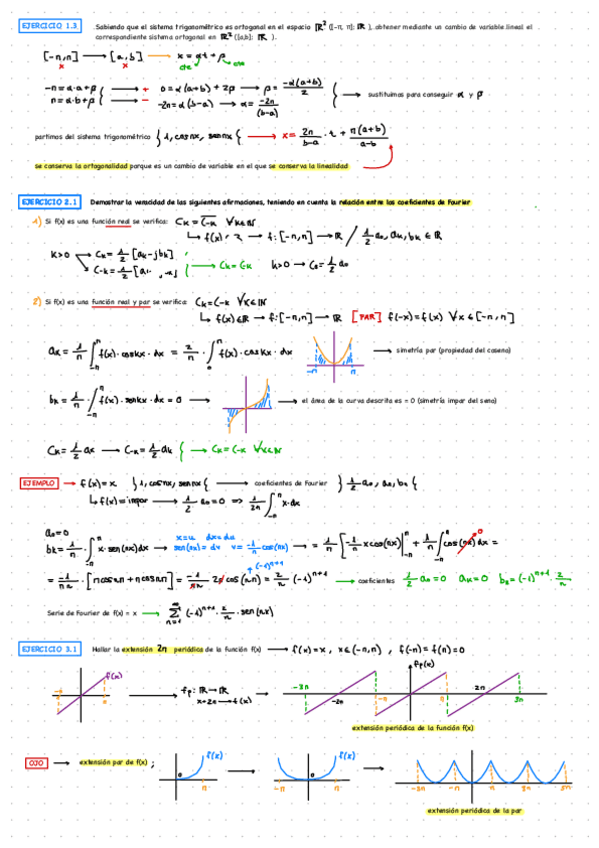 EJERCICIO 1.3 Sabiendo que el sistema trigonométrico es ortogonal en el espacio ℝ² ([-π, π]; ℝ ), obtener mediante un cambio de variable lineal el
correspondiente sistema ortogonal en ℝ² ([a,b]; ℝ ).
[-π,π] → [a,b] → x = αt + β
x x cte cte
-π = α·a + β } → + 0 = α(a+b) + 2β → β = -α(a+b)/2
π = α·b + β } → - -2π = α(b-a) → α = -2π/(b-a)
sustituimos para conseguir α y β
partimos del sistema trigonométrico } 1, cosnx, sennx { → x = 2π/(b-a) · t + π(a+b)/(a-b)
se conserva la ortogonalidad porque es un cambio de variable en el que se conserva la linealidad
EJERCICIO 2.1 Demostrar la veracidad de las siguientes afirmaciones, teniendo en cuenta la relación entre los coeficientes de Fourier
1) Si f(x) es una función real se verifica: Ck = C-k ∀k∈ℕ
f: [-π,π] → ℝ / 1/2 a₀, ak, bk ∈ ℝ
k>0 Ck = 1/2 [ak - jbk]
C-k = 1/2
→ Ck = C-k k>0 → C₀ = 1/2 a₀
2) Si f(x) es una función real y par se verifica: Ck = C-k ∀k∈ℕ
f(x)∈ℝ → f: [-π,π] → ℝ [PAR] f(-x) = f(x) ∀x∈[-π,π]
ak = 1/π ∫ f(x)·coskx·dx = 2/π · ∫ f(x)·coskx·dx
-π π
simetría par (propiedad del coseno)
bk = 1/π · ∫ f(x)·senkx·dx = 0
el área de la curva descrita es = 0 (simetría impar del seno)
Ck = 1/2 ak → C-k = 1/2 ak { → Ck = C-k ∀k∈ℕ
EJEMPLO → f(x) = x } 1, cosnx, sennx { → coeficientes de Fourier } 1/2 a₀, ak, bk {
f(x) = impar → 1/2 · a₀ = 0 => 1/2π ∫ x·dx
a₀ = 0
x=u dx=du
bk = 1/π · ∫ x·sen(nx)dx → sen(nx) = dv v = -1/n cos(nx) → = 1/π [ -1/n x cos(nx) | + 1/n ∫ cos(nx) dx =
0
(-1)ⁿ⁺¹
= -1/πn · [π cosπn + π cosπn] = -1/πn 2π cos(πn) = 2/n (-1)ⁿ⁺¹ → coeficientes 1/2 a₀ = 0 ak = 0 bk = (-1)ⁿ⁺¹ · 2/n
Serie de Fourier de f(x) = x → ∑ (-1)ⁿ⁺¹ · 2/n · sen(nx)
EJERCICIO 3.1 Hallar la extensión 2π periódica de la función f(x) → f(x) = x, x∈(-π,π), f(-π) = f(π) = 0
f(x)
fp: ℝ → ℝ
x+2π → f(x)
fp(x)
-3π -2π -π π 2π 3π
extensión periódica de la función f(x)
OJO → extensión par de f(x) ;
f(x)
0 π
f(x)
-π 0 π
-3π -π π 3π 5π
extensión periódica de la par